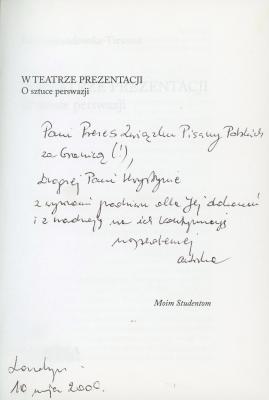 W TEATRZE PREZENTACJI
O sztuce perswazji
Pani Prezes Związku Pisarzy Polskich
za Granicą (!),
Drogiej Pani Krystynie
z wyrazami podziwu dla Jej dokonań
i z nadzieją na ich kontynuację
autorka
Moim Studentom
Londyn,
10 maja 2006.